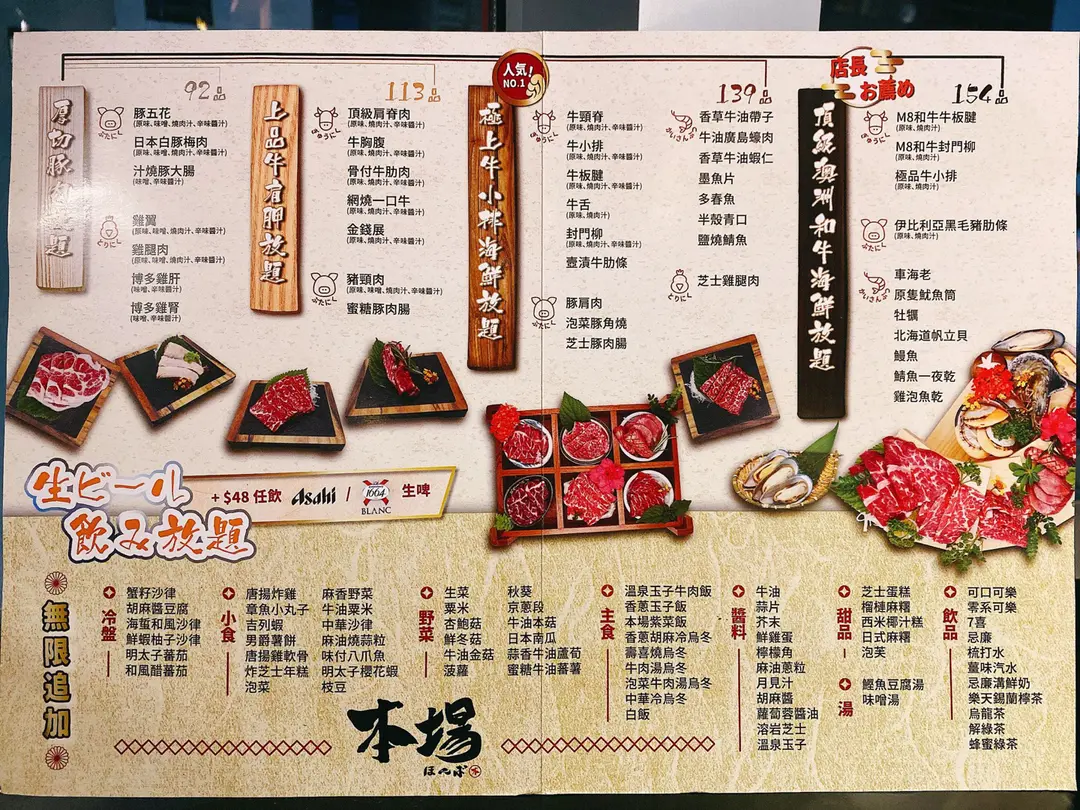 厚切豚肉放題
92品
豚五花
(原味、味噌、燒肉汁、辛味醬汁)
日本白豚梅肉
(原味、味噌、燒肉汁、辛味醬汁)
汁燒豚大腸
(味噌、辛味醬汁)
雞翼
(原味、味噌、燒肉汁、辛味醬汁)
雞腿肉
(原味、味噌、燒肉汁、辛味醬汁)
博多雞肝
(味噌、辛味醬汁)
博多雞腎
(味噌、辛味醬汁)
ぶたにく
とりにく
上品牛肩胛放題
113品
頂級肩脊肉
(原味、燒肉汁、辛味醬汁)
牛胸腹
(原味、燒肉汁、辛味醬汁)
骨付牛肋肉
(原味、燒肉汁、辛味醬汁)
網燒一口牛
(原味、燒肉汁、辛味醬汁)
金錢展
(原味、燒肉汁、辛味醬汁)
豬頸肉
(原味、味噌、燒肉汁、辛味醬汁)
蜜糖豚肉腸
ぎゅうにく
ぶたにく
人気!
NO.1
極上牛小排海鮮放題
139品
牛頸脊
(原味、燒肉汁、辛味醬汁)
牛小排
(原味、燒肉汁、辛味醬汁)
牛板腱
(原味、燒肉汁、辛味醬汁)
牛舌
(原味、燒肉汁)
封門柳
(原味、燒肉汁、辛味醬汁)
壹漬牛肋條
豚肩肉
泡菜豚角燒
芝士豚肉腸
香草牛油帶子
牛油廣島蠔肉
香草牛油蝦仁
墨魚片
多春魚
半殼青口
鹽燒鯖魚
芝士雞腿肉
ぎゅうにく
ぶたにく
かいさんぶつ
とりにく
店長
お薦め
頂級澳洲和牛海鮮放題
154品
M8和牛牛板腱
(原味、燒肉汁)
M8和牛封門柳
(原味、燒肉汁)
極品牛小排
(原味、燒肉汁)
伊比利亞黑毛豬肋條
(原味、燒肉汁)
車海老
原隻魷魚筒
牡蠣
北海道帆立貝
鰻魚
鯖魚一夜乾
雞泡魚乾
ぎゅうにく
ぶたにく
かいさんぶつ
生ビール
飲み放題
+ $48 任飲 Asahi / 1664 BLANC 生啤
無限追加
冷盤
蟹籽沙律
胡麻醬豆腐
海蜇和風沙律
鮮蝦柚子沙律
明太子蕃茄
和風醋蕃茄
小食
唐揚炸雞
章魚小丸子
吉列蝦
男爵薯餅
唐揚雞軟骨
炸芝士年糕
泡菜
麻香野菜
牛油粟米
中華沙律
麻油燒蒜粒
味付八爪魚
明太子櫻花蝦
枝豆
野菜
生菜
粟米
杏鮑菇
鮮冬菇
牛油金菇
菠蘿
秋葵
京蔥段
牛油本菇
日本南瓜
蒜香牛油蘆荀
蜜糖牛油蕃薯
主食
溫泉玉子牛肉飯
香蔥玉子飯
本場紫菜飯
香蔥胡麻冷烏冬
壽喜燒烏冬
牛肉湯烏冬
泡菜牛肉湯烏冬
中華冷烏冬
白飯
醬料
牛油
蒜片
芥末
鮮雞蛋
檸檬角
麻油蔥粒
月見汁
胡麻醬
蘿蔔蓉醬油
溶岩芝士
溫泉玉子
甜品
芝士蛋糕
榴槤麻糬
西米椰汁糕
日式麻糬
泡芙
湯
鰹魚豆腐湯
味噌湯
飲品
可口可樂
零系可樂
7喜
忌廉
梳打水
薑味汽水
忌廉溝鮮奶
樂天錫蘭檸茶
烏龍茶
解綠茶
蜂蜜綠茶
本場
ほんば